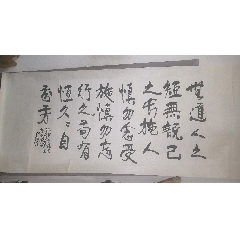 無道人之
短無說己
之長施人
慎勿念受
施慎勿忘
行之苟有
恆久々自
芬芳